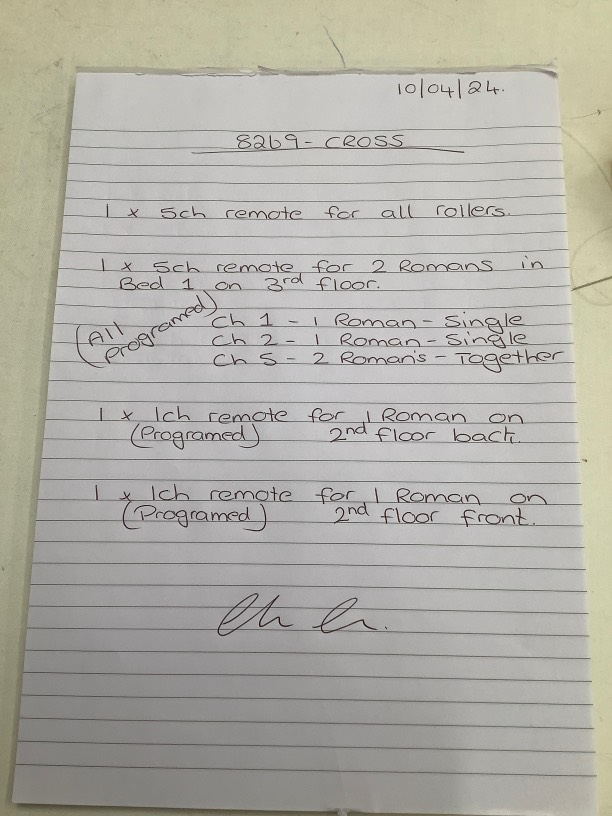 10/04/24.
8269 - CROSS
1 x 5ch remote for all rollers.
1 x 5ch remote for 2 Romans in
Bed 1 on 3rd floor.
(All Programed)
Ch 1 - 1 Roman - Single
Ch 2 - 1 Roman - Single
Ch 5 - 2 Roman's - Together
1 x 1ch remote for 1 Roman on
(Programed) 2nd floor back.
1 x 1ch remote for 1 Roman on
(Programed) 2nd floor front.